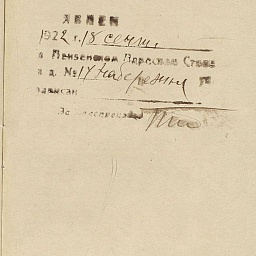 ЯВЛЕН
1922 г. 18 сент.
в Пензенском Адресном Столе
в д. № 14 Набережн ул
записан
За